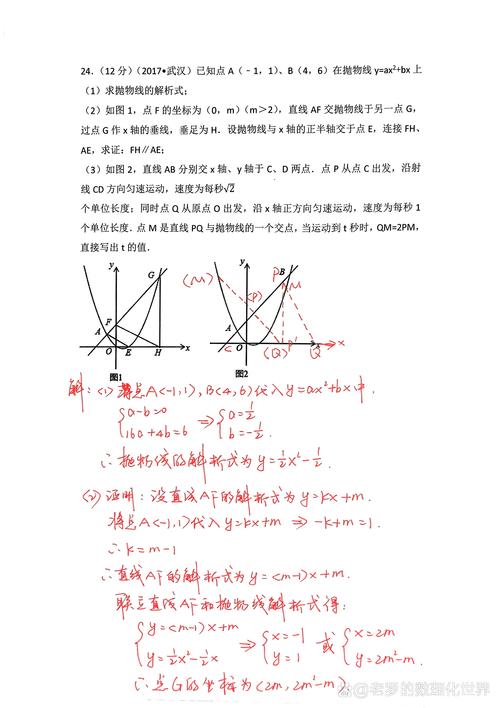 24.(12分)(2017•武汉)已知点A(﹣1,1)、B(4,6)在抛物线y=ax²+bx上
(1)求抛物线的解析式;
(2)如图1,点F的坐标为(0,m)(m>2),直线AF交抛物线于另一点G,
过点G作x轴的垂线,垂足为H.设抛物线与x轴的正半轴交于点E,连接FH、
AE,求证:FH∥AE;
(3)如图2,直线AB分别交x轴、y轴于C、D两点.点P从点C出发,沿射
线CD方向匀速运动,速度为每秒√2
个单位长度;同时点Q从原点O出发,沿x轴正方向匀速运动,速度为每秒1
个单位长度.点M是直线PQ与抛物线的一个交点,当运动到t秒时,QM=2PM,
直接写出t的值.
y
G
F
A
O
E
H
x
图1
y
(M)
P
B
M
(P)
A
C
O
(Q)
P'
Q
x
图2
解:(1)将点A(-1,1),B(4,6)代入y=ax²+bx中.
{a-b=0
16a+4b=6
⇒
{a=1/2
b=-1/2.
∴抛物线的解析式为y=1/2x²-1/2.
(2)证明:设直线AF的解析式为y=kx+m.
将点A(-1,1)代入y=kx+m ⇒ -k+m=1.
∴k=m-1
∴直线AF的解析式为y=(m-1)x+m.
联立直线AF和抛物线解析式得:
{y=(m-1)x+m
y=1/2x²-1/2x
⇒
{x=-1
y=1
或
{x=2m
y=2m²-m.
∴点G的坐标为(2m,2m²-m).
@老罗的数理化世界